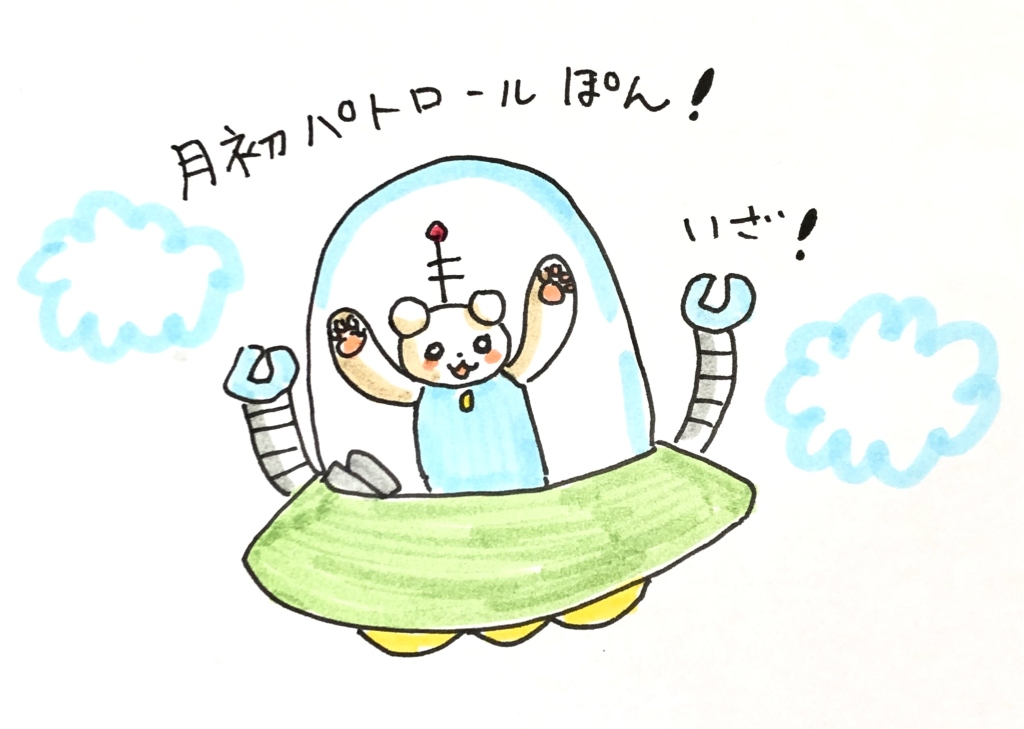 月初パトロールぽん!
いざ!